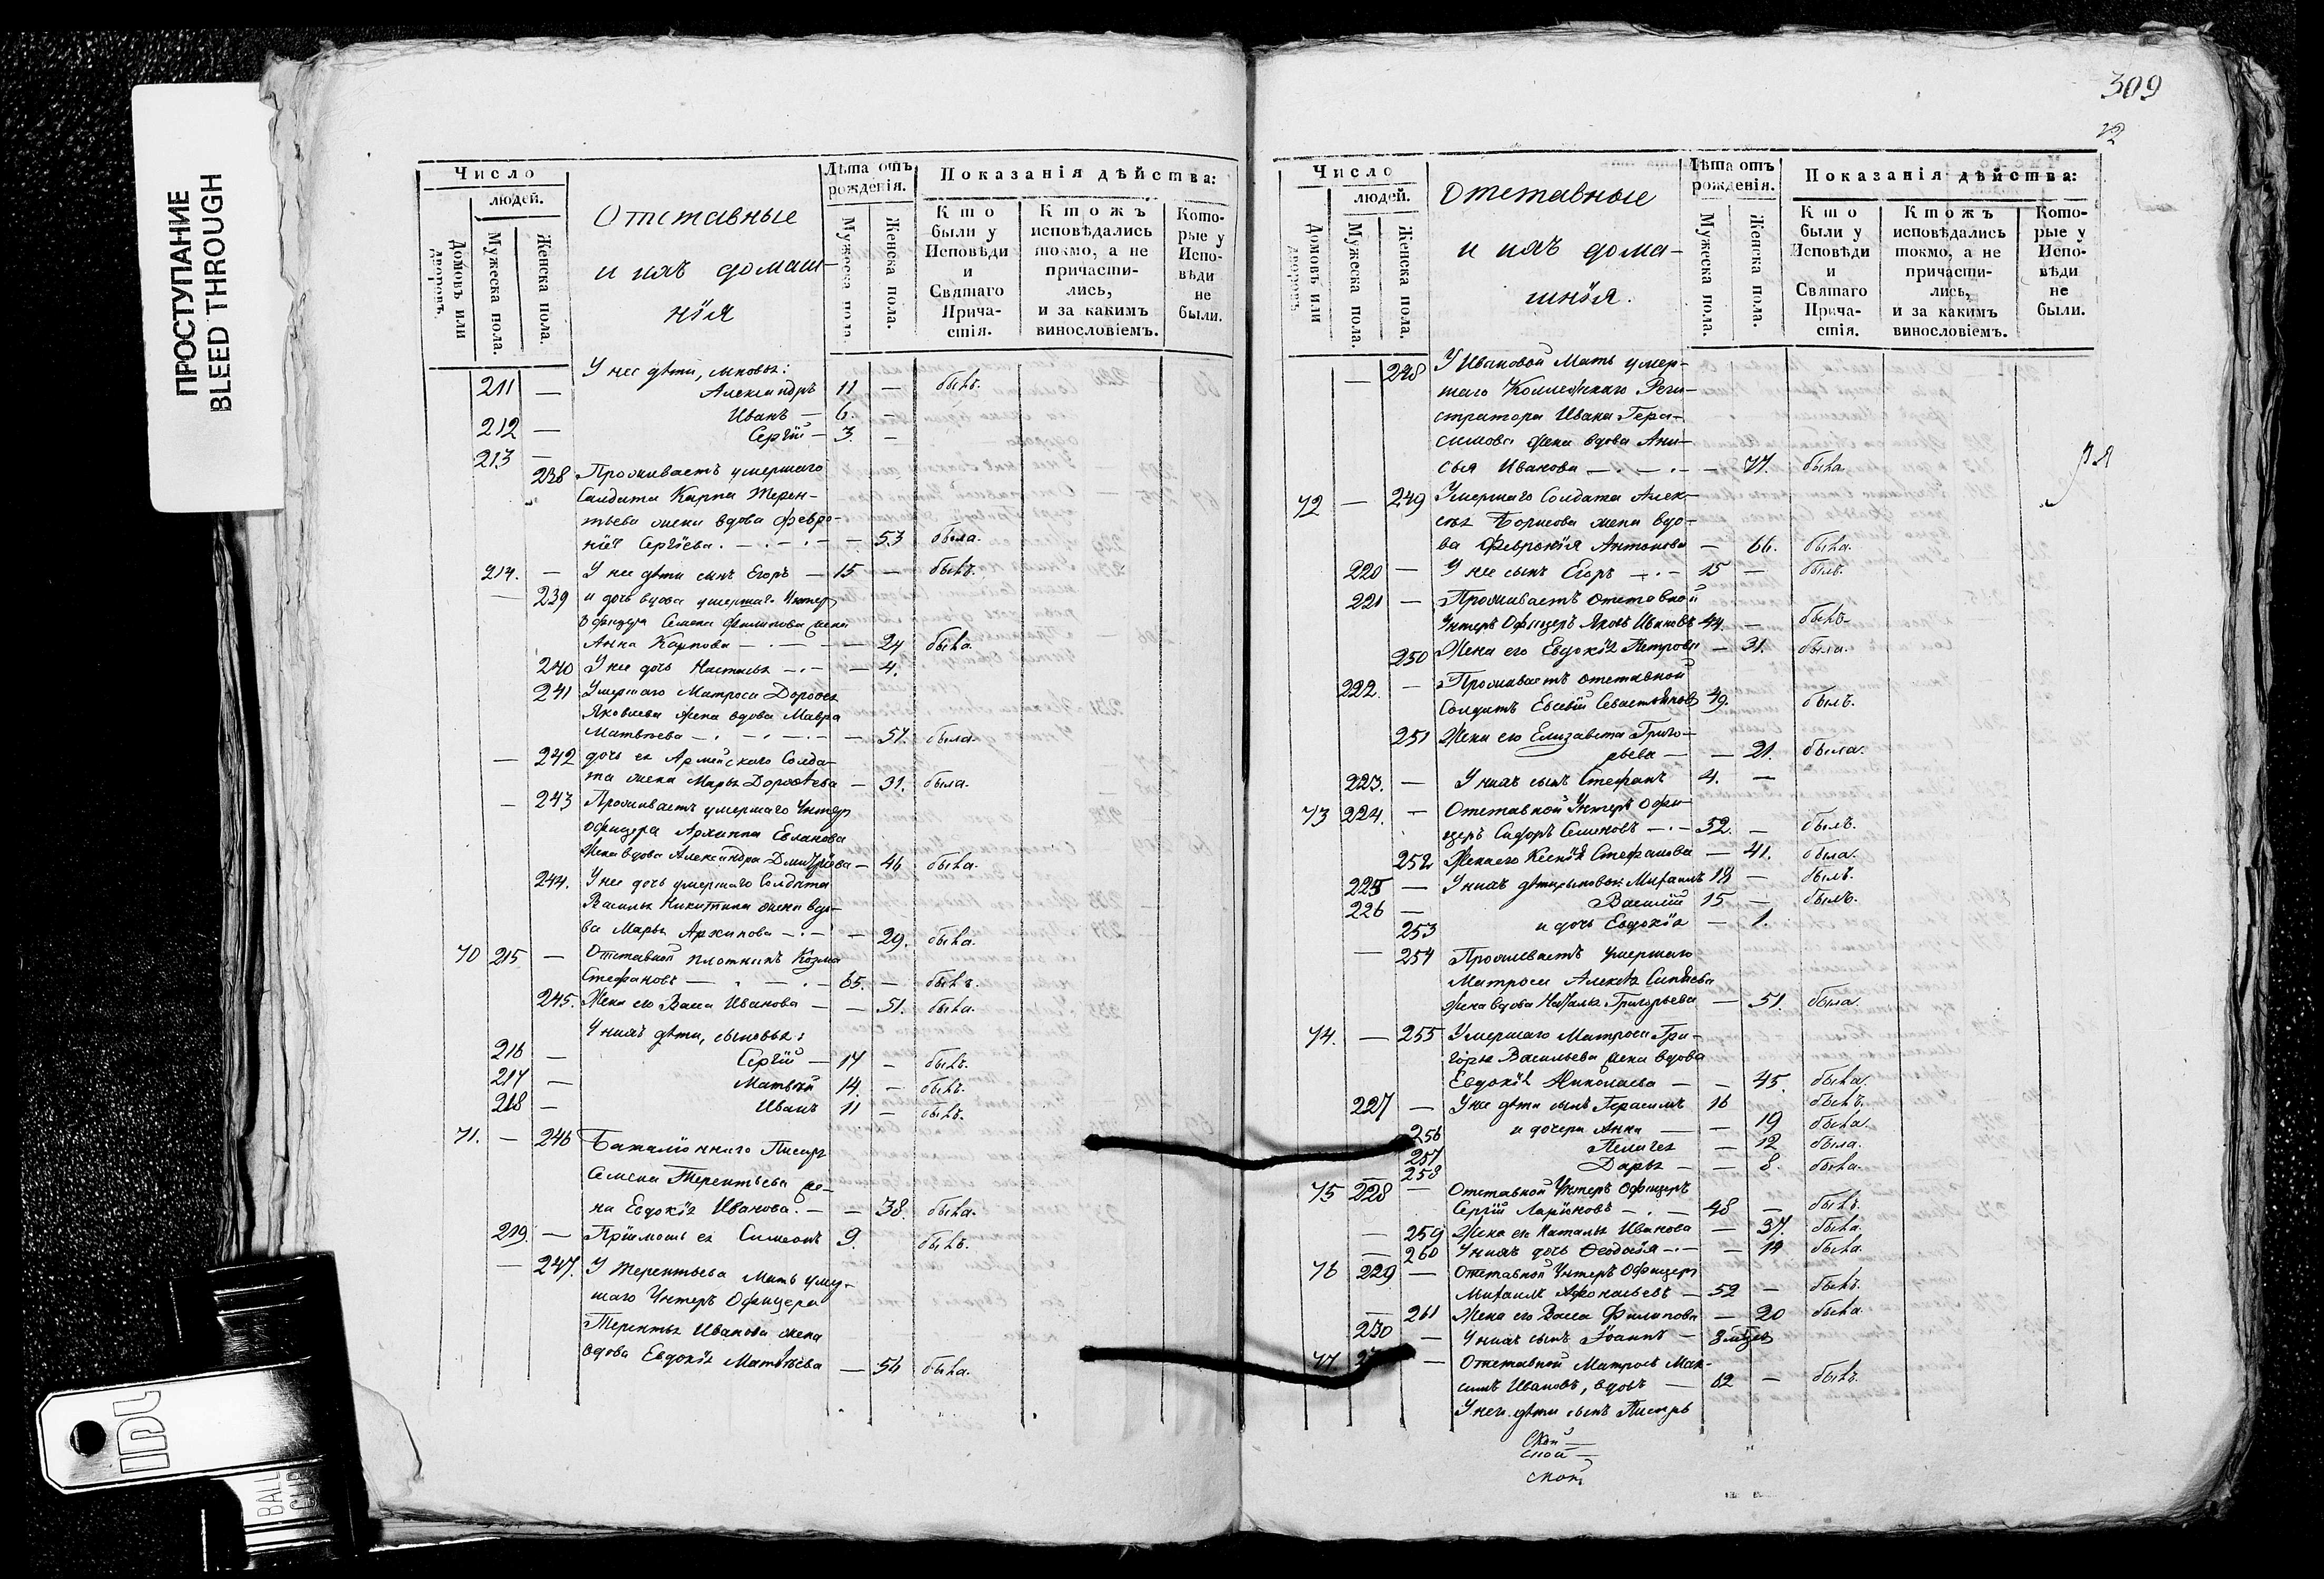 ПРОСТУПАНИЕ
BLEED THROUGH
Число
людей.
Домовъ или дворовъ.
Мужеска пола.
Женска пола.
Отставные
и ихъ домаш-
нія
Лѣта отъ рожденія.
Мужеска пола.
Женска пола.
Показанія дѣйства:
Кто были у Исповѣди и Святаго Прича-стія.
Ктожъ исповѣдались токмо, а не причасти-лись, и за какимъ винословіемъ.
Кото-рые у Испо-вѣди не были.
У нее дѣти, сыновья:
211 — Александръ 11 — былъ.
212 — Иванъ — 6. —
213 — Сергій — 3. —
238 Проживаетъ умершаго
Солдата Карпа Терен-
тьева жена вдова Февро-
нія Сергіева. — 53 была.
214. — У нее дѣти сынъ Егоръ — 15 — былъ.
— 239 и дочь вдова умершаго Унтеръ
Офицера Семена Филипова жена
Анна Карпова — 24 была.
240 У нее дочь Настасья — 4.
241 Умершаго Матроса Дорофея
Яковлева жена вдова Мавра
Матвѣева — 57. была.
— 242 дочь ея Армейскаго Солда-
та жена Марья Дорофѣева — 31. была.
— 243 Проживаетъ умершаго Унтеръ
Офицера Архиппа Евланова
Жена вдова Александра Дмитріева — 46 была.
244. У нее дочь умершаго Солдата
Василья Никитина жена вдо-
ва Марья Архипова — 29. была.
70 215 — Отставной плотникъ Козма
Стефановъ — 65. — былъ.
245. Жена его Васса Иванова — 51. была.
У нихъ дѣти, сыновья:
216 — Сергій — 17 — былъ.
217 — Матвѣй 14. — былъ.
218 — Иванъ 11 — былъ.
71. — 246 Баталіоннаго Писаря
Семена Терентьева же-
на Евдокія Иванова. — 38. была.
219. — Пріемышъ ея Симеонъ 9. былъ.
— 247. У Терентьева Мать умер-
шаго Унтеръ Офицера
Терентья Иванова жена
вдова Евдокія Матвѣева — 56 была.
309
Число
людей.
Домовъ или дворовъ.
Мужеска пола.
Женска пола.
Отставные
и ихъ дома-
шнія.
Лѣта отъ рожденія.
Мужеска пола.
Женска пола.
Показанія дѣйства:
Кто были у Исповѣди и Святаго Прича-стія.
Ктожъ исповѣдались токмо, а не причасти-лись, и за какимъ винословіемъ.
Кото-рые у Испо-вѣди не были.
— 248 У Ивановой Мать умер-
шаго Коллежскаго Реги-
стратора Ивана Гера-
симова жена вдова Ани-
сья Иванова — 77. была
72 — 249 Умершаго Солдата Алек-
сѣя Борисова жена вдо-
ва Февронія Антонова — 66. была.
220 — У нее сынъ Егоръ — 15 — былъ.
221 — Проживаетъ отставной
Унтеръ Офицеръ Яковъ Ивановъ 44. — былъ
250 Жена его Евдокія Петрова — 31. была.
222. — Проживаетъ отставной
Солдатъ Евсевій Севастьяновъ 49. былъ.
251 Жена его Елизавета Григо-
рьева — 21. была.
223. — У нихъ сынъ Стефанъ 4. —
73 224. — Отставной Унтеръ Офи-
церъ Сидоръ Семеновъ — 52. — былъ.
252 Жена его Ксенія Стефанова — 41. была.
225 — У нихъ дѣти сыновья: Михаилъ 18 — былъ.
226 — Василій 15 — былъ.
253 и дочь Евдокія — 1.
— 254 Проживаетъ умершаго
Матроса Алексѣя
жена вдова Наталья Григорьева — 51. была.
74. — 255 Умершаго Матроса Гри-
горья Васильева жена вдова
Евдокія Николаева — 45. была.
227 — У нее дѣти сынъ Герасимъ 16 былъ.
256 и дочери Анна — 19 была.
257 Пелагея — 12 была.
258 Дарья — 8. была.
75 228 — Отставной Унтеръ Офицеръ
Сергій Ларіоновъ — 48 — былъ.
— 259 Жена его Наталья Иванова — 37. была.
— 260 У нихъ дочь Ѳеодосія — 14 была.
76 229 — Отставной Унтеръ Офицеръ
Михаилъ Афонасьевъ — 52 — былъ.
— 261 Жена его Васса Филипова — 20 была.
230 — У нихъ сынъ Іоаннъ —
77. — Отставной Матросъ Мак-
симъ Ивановъ, вдовъ — 62 — былъ.
У него дѣти сынъ Писарь